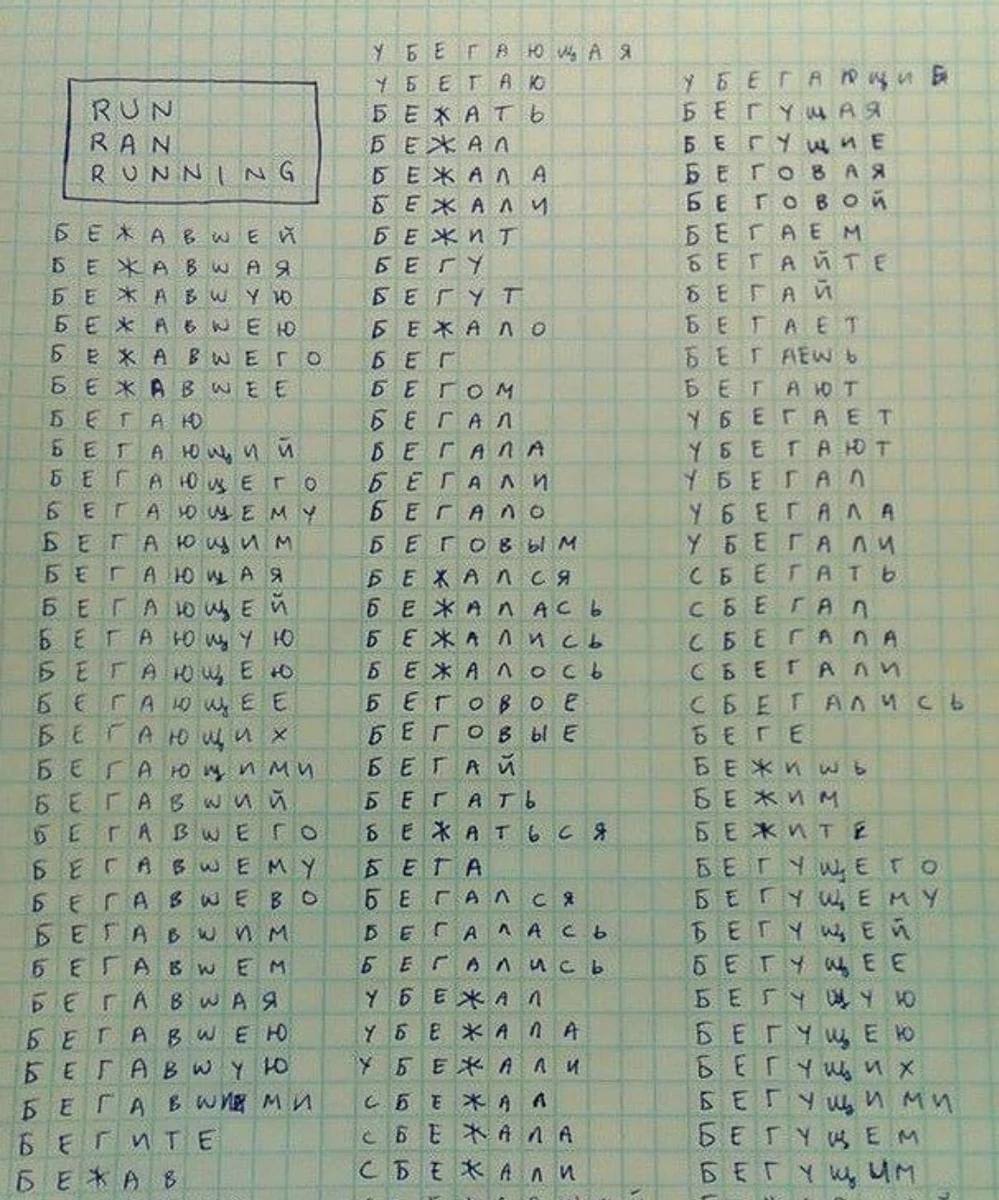 RUN
RAN
RUNNING
БЕЖАВШЕЙ
БЕЖАВШАЯ
БЕЖАВШУЮ
БЕЖАВШЕЮ
БЕЖАВШЕГО
БЕЖАВШЕЕ
БЕГАЮ
БЕГАЮЩИЙ
БЕГАЮЩЕГО
БЕГАЮЩЕМУ
БЕГАЮЩИМ
БЕГАЮЩАЯ
БЕГАЮЩЕЙ
БЕГАЮЩУЮ
БЕГАЮЩЕЮ
БЕГАЮЩЕЕ
БЕГАЮЩИХ
БЕГАЮЩИМИ
БЕГАВШИЙ
БЕГАВШЕГО
БЕГАВШЕМУ
БЕГАВШЕВО
БЕГАВШИМ
БЕГАВШЕМ
БЕГАВШАЯ
БЕГАВШЕЮ
БЕГАВШУЮ
БЕГАВШИМИ
БЕГИТЕ
БЕЖАВ
УБЕГАЮЩАЯ
УБЕГАЮ
БЕЖАТЬ
БЕЖАЛ
БЕЖАЛА
БЕЖАЛИ
БЕЖИТ
БЕГУ
БЕГУТ
БЕЖАЛО
БЕГ
БЕГОМ
БЕГАЛ
БЕГАЛА
БЕГАЛИ
БЕГАЛО
БЕГОВЫМ
БЕЖАЛСЯ
БЕЖАЛАСЬ
БЕЖАЛИСЬ
БЕЖАЛОСЬ
БЕГОВОЕ
БЕГОВЫЕ
БЕГАЙ
БЕГАТЬ
БЕЖАТЬСЯ
БЕГА
БЕГАЛСЯ
БЕГАЛАСЬ
БЕГАЛИСЬ
УБЕЖАЛ
УБЕЖАЛА
УБЕЖАЛИ
СБЕЖАЛ
СБЕЖАЛА
СБЕЖАЛИ
БЕГУЩАЯ
БЕГУЩИЕ
БЕГОВАЯ
БЕГОВОЙ
БЕГАЕМ
БЕГАЙТЕ
БЕГАЙ
БЕГАЕТ
БЕГАЕШЬ
БЕГАЮТ
УБЕГАЕТ
УБЕГАЮТ
УБЕГАЛ
УБЕГАЛА
УБЕГАЛИ
СБЕГАТЬ
СБЕГАЛ
СБЕГАЛА
СБЕГАЛИ
СБЕГАЛИСЬ
БЕГЕ
БЕЖИШЬ
БЕЖИМ
БЕЖИТЕ
БЕГУЩЕГО
БЕГУЩЕМУ
БЕГУЩЕЙ
БЕГУЩЕЕ
БЕГУЩУЮ
БЕГУЩЕЮ
БЕГУЩИХ
БЕГУЩИМИ
БЕГУЩЕМ
БЕГУЩИМ